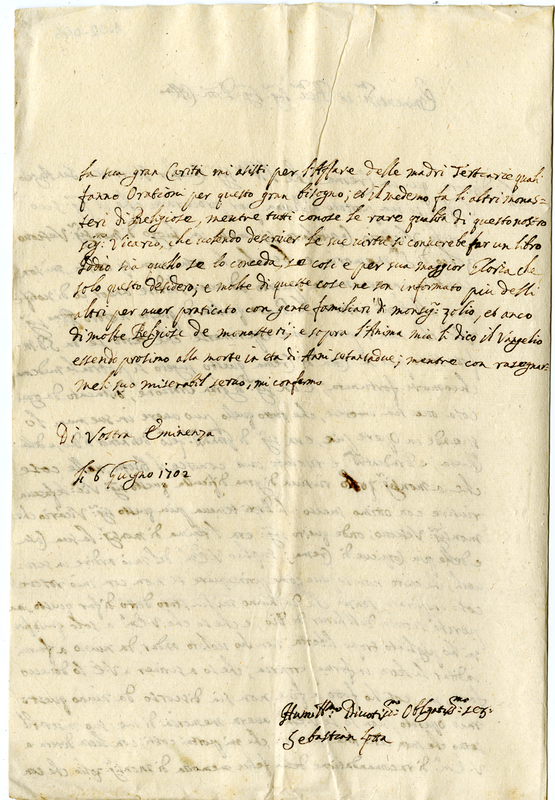 la sua gran Carità mi asisti per l'Affare delle madri Terticarie quali
fanno Orationi per questo gran bisogno; et il medemo fa li altri monas=
teri di Religiose, mentre tutti conose le rare qualità di questo nostro
sig: Vicario, che volendo descriver le sue virtù si converebe far un libro
Iddio sia quello se lo conceda, se così è per sua maggior Gloria che
solo questo desidero; e molte di queste cose ne son informato più delli
altri per aver praticato con gente familiari di monsig: zolio, et anco
di molte Religiose de monasteri; e sopra l'Anima mia li dico il Vangelio
essendo prosimo alla morte in età di Anni setantadue; mentre con rasegnar=
meli suo miserabil servo, mi confermo
Di Vostra Eminenza
li 6 Giugno 1702
Humill:mo Divotis:mo Obligatis:mo ser:
Sebastian